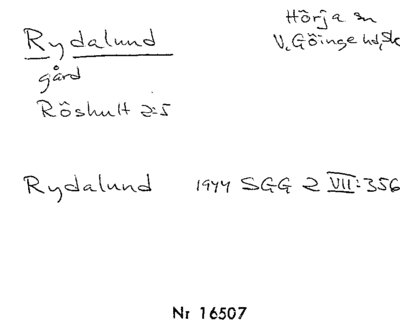 Rydalund
Hörja sn
V. Göinge hd, Sk
gård
Röshult 2:5
Rydalund 1944 SGG 2 VII:356
Nr 16507